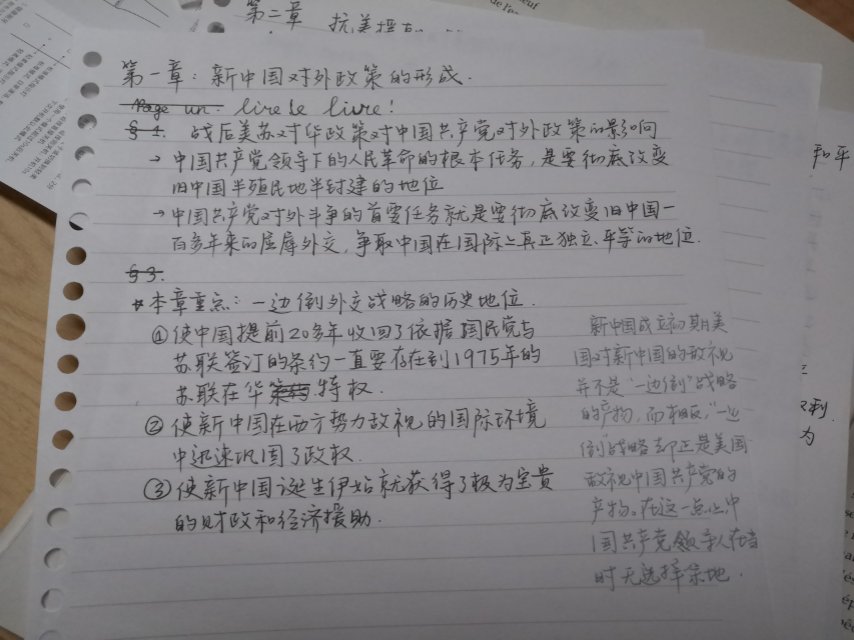 第二章 抗美援
第一章：新中国对外政策的形成.
Page un. lire le livre!
§1. 战后美苏对华政策对中国共产党对外政策的影响
→ 中国共产党领导下的人民革命的根本任务，是要彻底改变
旧中国半殖民地半封建的地位
→ 中国共产党对外斗争的首要任务就是要彻底改变旧中国一
百多年来的屈辱外交，争取中国在国际上真正独立、平等的地位.
§3.
☆本章重点：一边倒外交战略的历史地位.
①使中国提前20多年收回了依据国民党与
苏联签订的条约一直要存在到1975年的
苏联在华特权.
②使新中国在西方势力敌视的国际环境
中迅速巩固了政权.
③使新中国诞生伊始就获得了极为宝贵
的财政和经济援助.
新中国成立初期美
国对新中国的敌视
并不是"一边倒"战略
的产物，而相反，"一边
倒"战略却正是美国
敌视中国共产党的
产物。在这一点上，中
国共产党领导人在当
时无选择余地.
和平
权利.
为